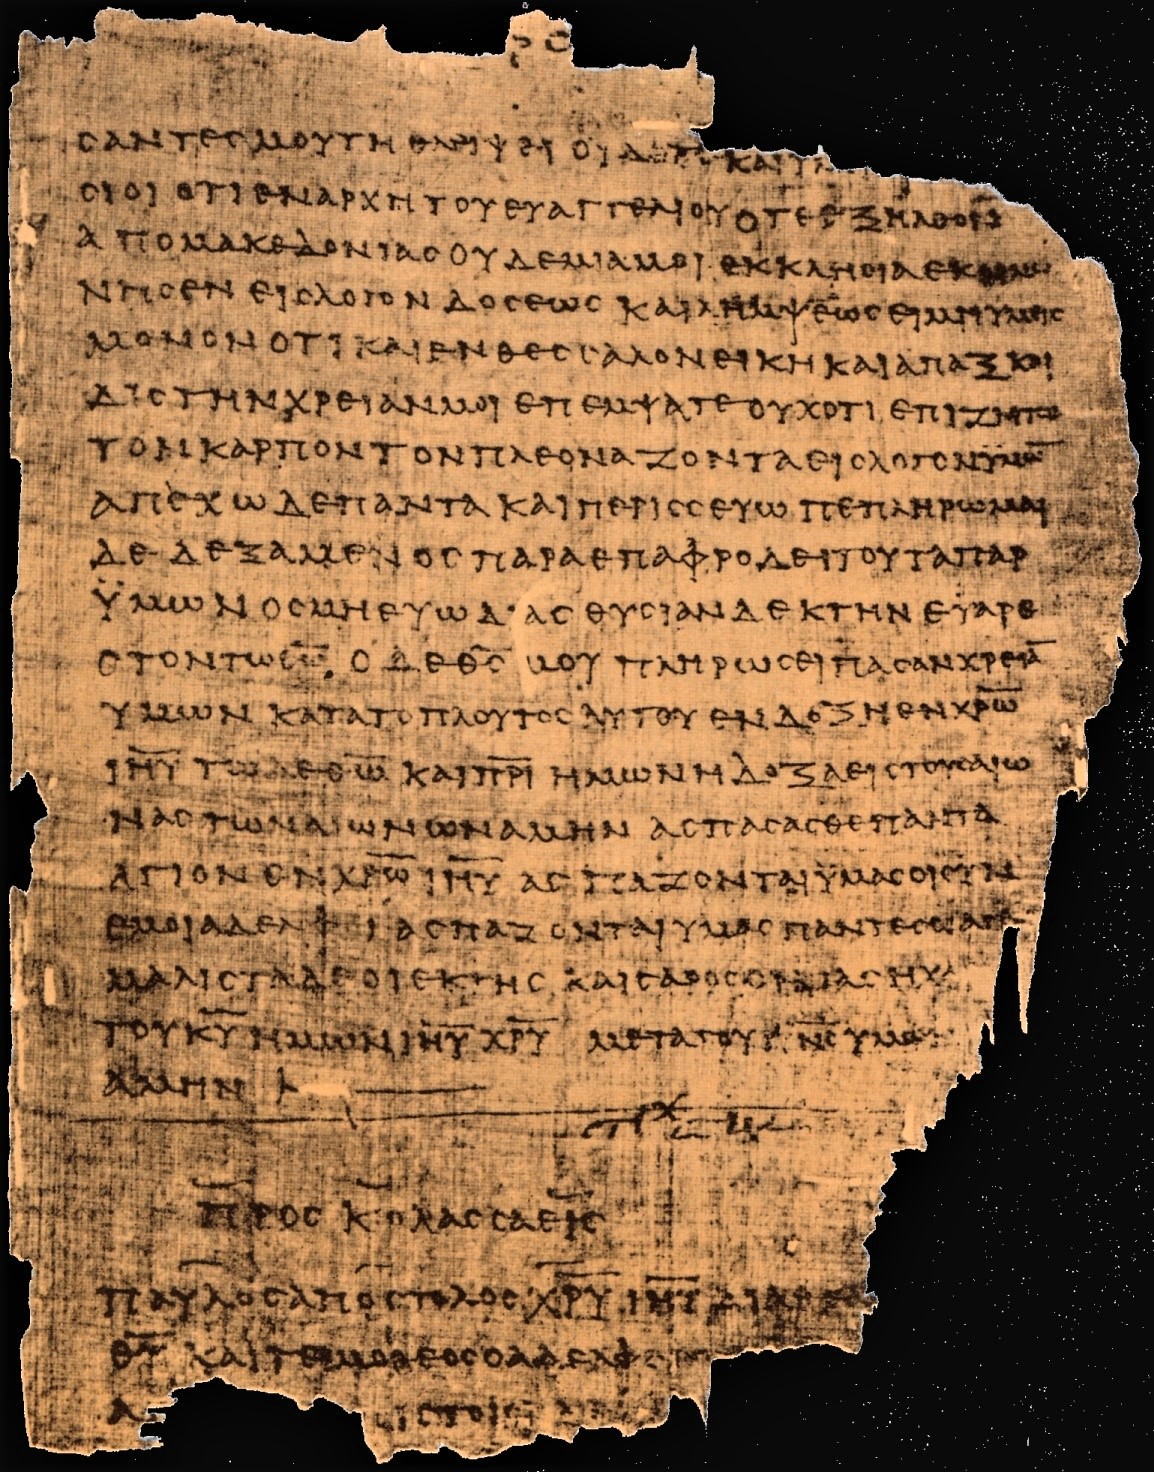 ϹΑΝΤΕϹ ΜΟΥ ΤΗ ΘΛΕΙΨΕΙ ΟΙΔΑΤΕ ΚΑΙ
ϹΙΟΙ ΟΤΙ ΕΝ ΑΡΧΗ ΤΟΥ ΕΥΑΓΓΕΛΙΟΥ ΟΤΕ ΕΞΗΛΘΟΝ
ΑΠΟ ΜΑΚΕΔΟΝΙΑϹ ΟΥΔΕΜΙΑ ΜΟΙ ΕΚΚΛΗϹΙΑ ΕΚΟΙΝΩ
ΝΗϹΕΝ ΕΙϹ ΛΟΓΟΝ ΔΟϹΕΩϹ ΚΑΙ ΛΗΜΨΕΩϹ ΕΙ ΜΗ ΥΜΕΙϹ
ΜΟΝΟΝ ΟΤΙ ΚΑΙ ΕΝ ΘΕϹϹΑΛΟΝΕΙΚΗ ΚΑΙ ΑΠΑΞ ΚΑΙ
ΔΙϹ ΤΗΝ ΧΡΕΙΑΝ ΜΟΙ ΕΠΕΜΨΑΤΕ ΟΥΧ ΟΤΙ ΕΠΙΖΗΤΩ
ΤΟΝ ΚΑΡΠΟΝ ΤΟΝ ΠΛΕΟΝΑΖΟΝΤΑ ΕΙϹ ΛΟΓΟΝ ΫΜΩ̅
ΑΠΕΧΩ ΔΕ ΠΑΝΤΑ ΚΑΙ ΠΕΡΙϹϹΕΥΩ ΠΕΠΛΗΡΩΜΑΙ
ΔΕ ΔΕΞΑΜΕΝΟϹ ΠΑΡΑ ΕΠΑΦΡΟΔΕΙΤΟΥ ΤΑ ΠΑΡ
ΫΜΩΝ ΟϹΜΗ ΕΥΩΔΙΑϹ ΘΥϹΙΑΝ ΔΕΚΤΗΝ ΕΥΑΡΕ
ϹΤΟΝ ΤΩ Θ̅Ω̅ Ο ΔΕ Θ̅Ϲ̅ ΜΟΥ ΠΛΗΡΩϹΕΙ ΠΑϹΑΝ ΧΡΕΙΑ̅
ΥΜΩΝ ΚΑΤΑ ΤΟ ΠΛΟΥΤΟϹ ΑΥΤΟΥ ΕΝ ΔΟΞΗ ΕΝ Χ̅Ρ̅Ω̅
Ι̅Η̅Υ̅ ΤΩ ΔΕ Θ̅Ω̅ ΚΑΙ Π̅Ρ̅Ι̅ ΗΜΩΝ Η ΔΟΞΑ ΕΙϹ ΤΟΥϹ ΑΙΩ
ΝΑϹ ΤΩΝ ΑΙΩΝΩΝ ΑΜΗΝ ΑϹΠΑϹΑϹΘΕ ΠΑΝΤΑ
ΑΓΙΟΝ ΕΝ Χ̅Ρ̅Ω̅ Ι̅Η̅Υ̅ ΑϹΠΑΖΟΝΤΑΙ ΫΜΑϹ ΟΙ ϹΥΝ
ΕΜΟΙ ΑΔΕΛΦΟΙ ΑϹΠΑΖΟΝΤΑΙ ΥΜΑϹ ΠΑΝΤΕϹ ΟΙ ΑΓΙ
ΜΑΛΙϹΤΑ ΔΕ ΟΙ ΕΚ ΤΗϹ ΚΑΙϹΑΡΟϹ ΟΙΚΙΑϹ Η ΧΑ
ΤΟΥ Κ̅Υ̅ ΗΜΩΝ Ι̅Η̅Υ̅ Χ̅Ρ̅Υ̅ ΜΕΤΑ ΤΟΥ Π̅Ν̅Ϲ̅ ΥΜΩ
ΑΜΗΝ
ΠΡΟϹ ΚΟΛΑϹϹΑΕΙϹ
ΠΑΥΛΟϹ ΑΠΟϹΤΟΛΟϹ Χ̅Ρ̅Υ̅ Ι̅Η̅Υ̅ ΔΙΑ
Θ̅Υ̅ ΚΑΙ ΤΕΙΜΟΘΕΟϹ Ο ΑΔΕΛΦ